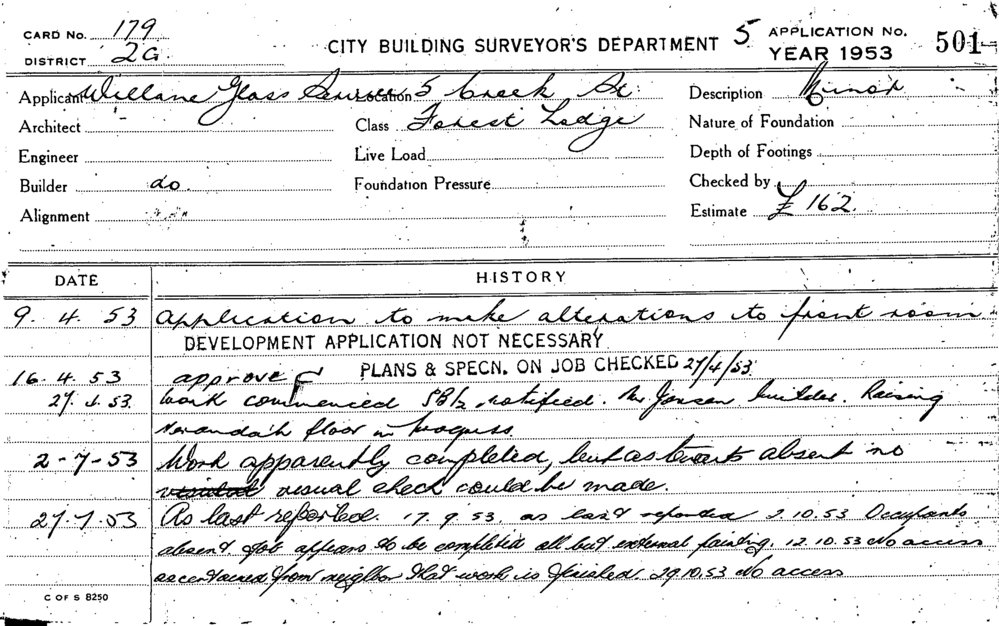 CARD No. 179
DISTRICT 2G.
CITY BUILDING SURVEYOR'S DEPARTMENT 5
APPLICATION No.
YEAR 1953
501
Applicant Glass Location 5 Creek St.
Description Minor
Architect
Class Forest Lodge
Nature of Foundation
Engineer
Live Load
Depth of Footings
Builder do.
Foundation Pressure
Checked by
Alignment
Estimate £ 162.
DATE HISTORY
9. 4. 53 Application to make alterations to front room
DEVELOPMENT APPLICATION NOT NECESSARY
PLANS & SPECN. ON JOB CHECKED 27/4/53.
16. 4. 53 approve
27. 4. 53. Work commenced notified. Mr Jansen builder. Raising
Verandah floor in progress.
2-7-53 Work apparently completed, but as tenants absent no
visual check could be made.
27.7.53 As last reported. 17. 9. 53. as last reported 2.10.53 Occupants
absent Job appears to be completed all but external painting. 12.10.53 No access
ascertained from neighbor that work is finished. 29.10.53 No access
C OF S 8250